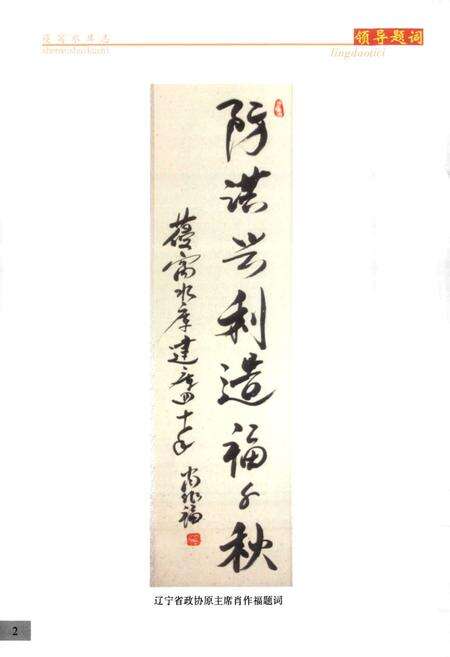 葠窝水库志
shenwoshuikuzhi
领导题词
lingdaotici
防洪兴利造福千秋
葠窝水库建库四十年
肖作福
辽宁省政协原主席肖作福题词
2